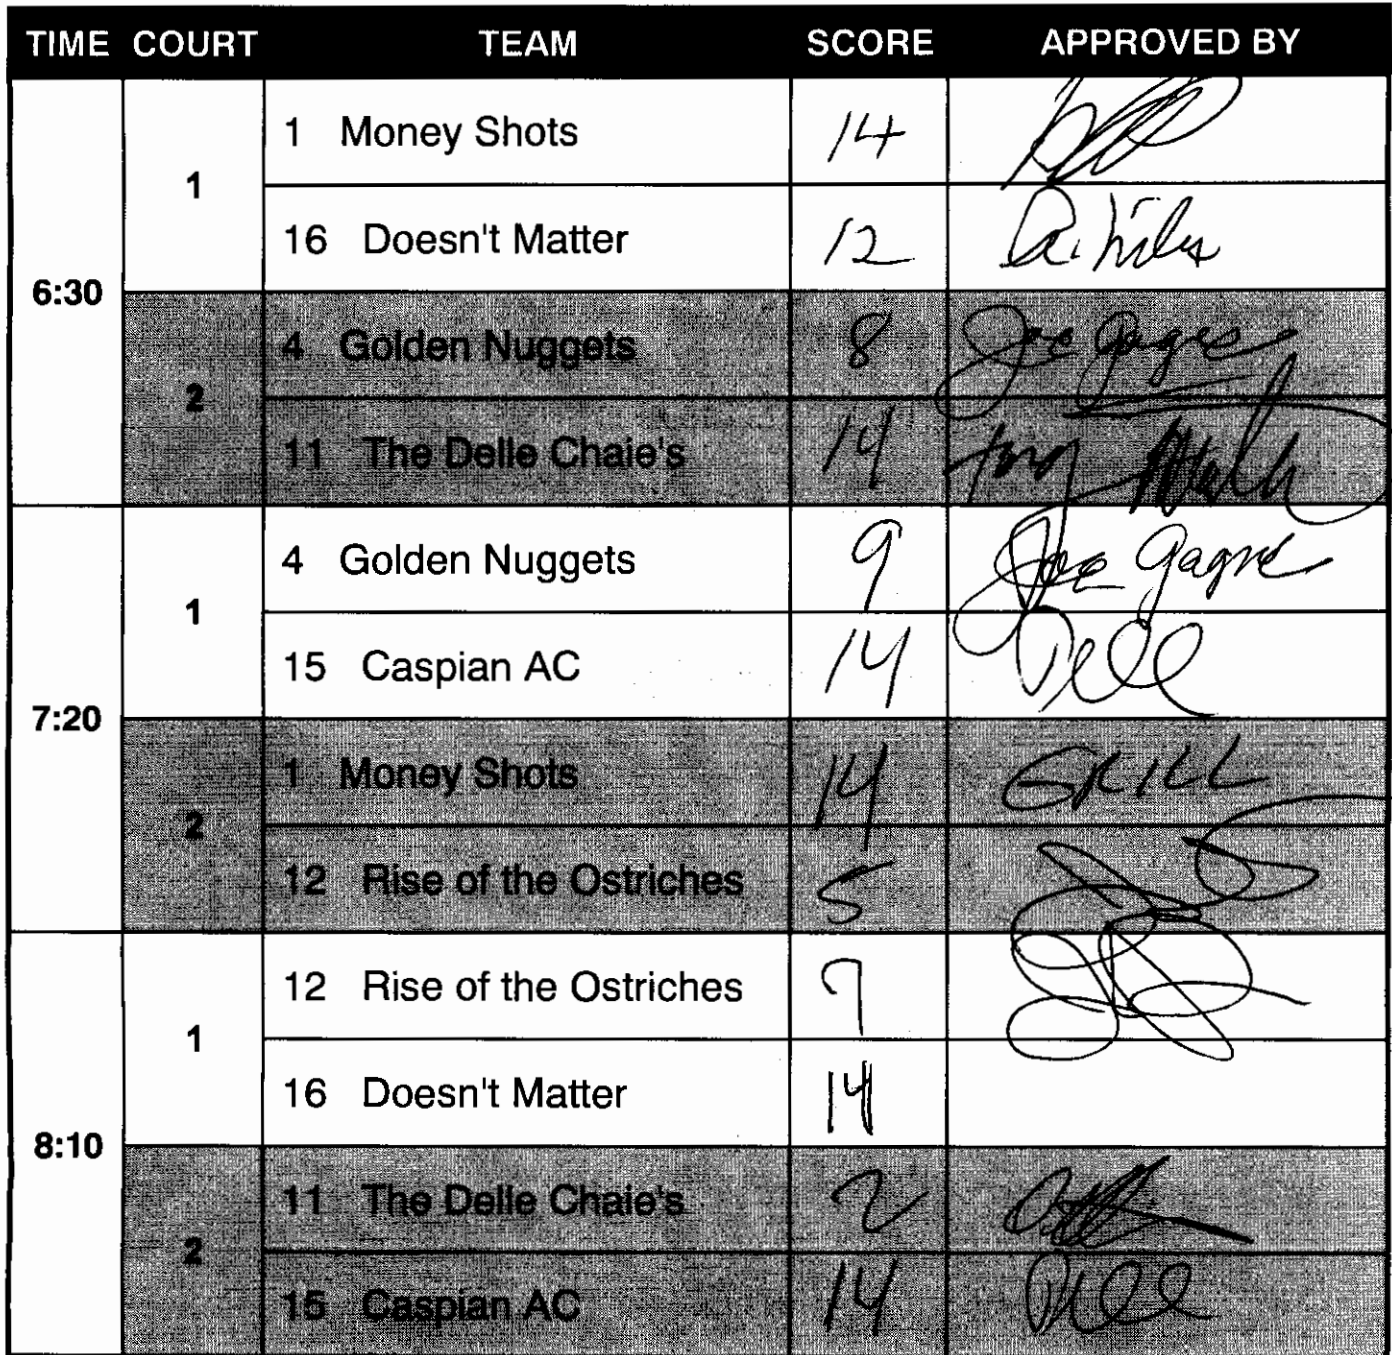 TIME COURT TEAM SCORE APPROVED BY
6:30
1
1 Money Shots 14
16 Doesn't Matter 12
2
4 Golden Nuggets 8 Joe Gagne
11 The Delle Chaie's 14
7:20
1
4 Golden Nuggets 9 Joe Gagne
15 Caspian AC 14
2
1 Money Shots 14 GRILL
12 Rise of the Ostriches 5
8:10
1
12 Rise of the Ostriches
16 Doesn't Matter 14
2
11 The Delle Chaie's 2
15 Caspian AC 14